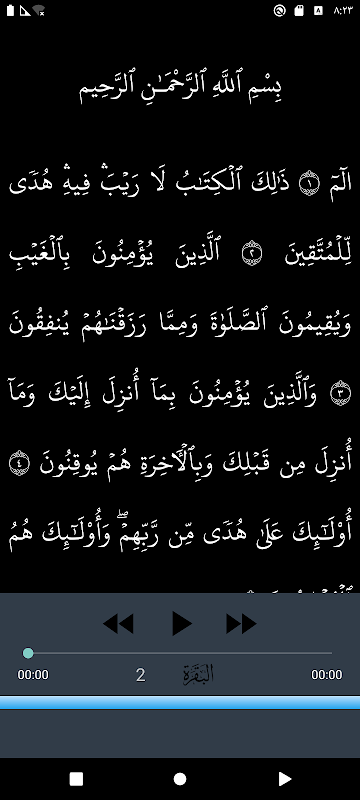 ٨:٢٣
بِسْمِ ٱللَّهِ ٱلرَّحْمَـٰنِ ٱلرَّحِيمِ
الٓمٓ ١ ذَٰلِكَ ٱلْكِتَـٰبُ لَا رَيْبَ ۛ فِيهِ ۛ هُدًى
لِّلْمُتَّقِينَ ٢ ٱلَّذِينَ يُؤْمِنُونَ بِٱلْغَيْبِ
وَيُقِيمُونَ ٱلصَّلَوٰةَ وَمِمَّا رَزَقْنَـٰهُمْ يُنفِقُونَ
٣ وَٱلَّذِينَ يُؤْمِنُونَ بِمَآ أُنزِلَ إِلَيْكَ وَمَآ
أُنزِلَ مِن قَبْلِكَ وَبِٱلْـَٔاخِرَةِ هُمْ يُوقِنُونَ ٤
أُو۟لَـٰٓئِكَ عَلَىٰ هُدًى مِّن رَّبِّهِمْ ۖ وَأُو۟لَـٰٓئِكَ هُمُ
00:00 2 البَقَرَة 00:00